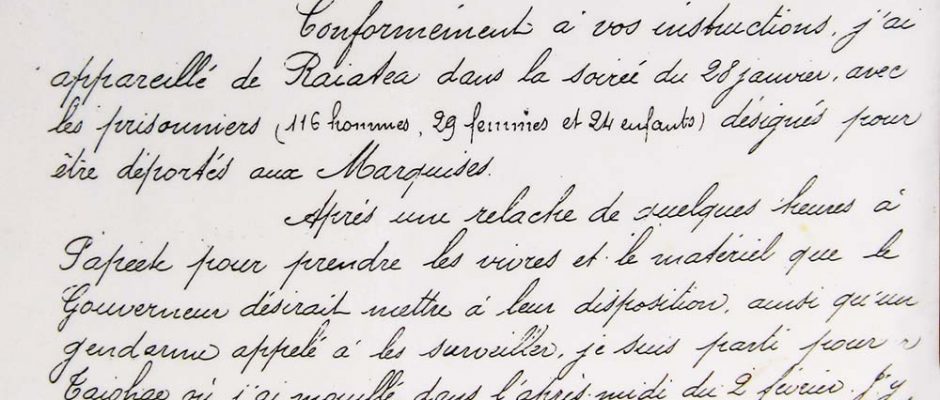 Conformément à vos instructions, j'ai
appareillé de Raiatea dans la soirée du 28 janvier, avec
les prisonniers (116 hommes, 29 femmes et 24 enfants) désignés pour
être déportés aux Marquises.
Après une relache de quelques heures à
Papeete pour prendre les vivres et le matériel que le
Gouverneur désirait mettre à leur disposition, ainsi qu'un
gendarme appelé à les surveiller, je suis parti pour
Taiohae où j'ai mouillé dans l'après-midi du 2 février. J'y